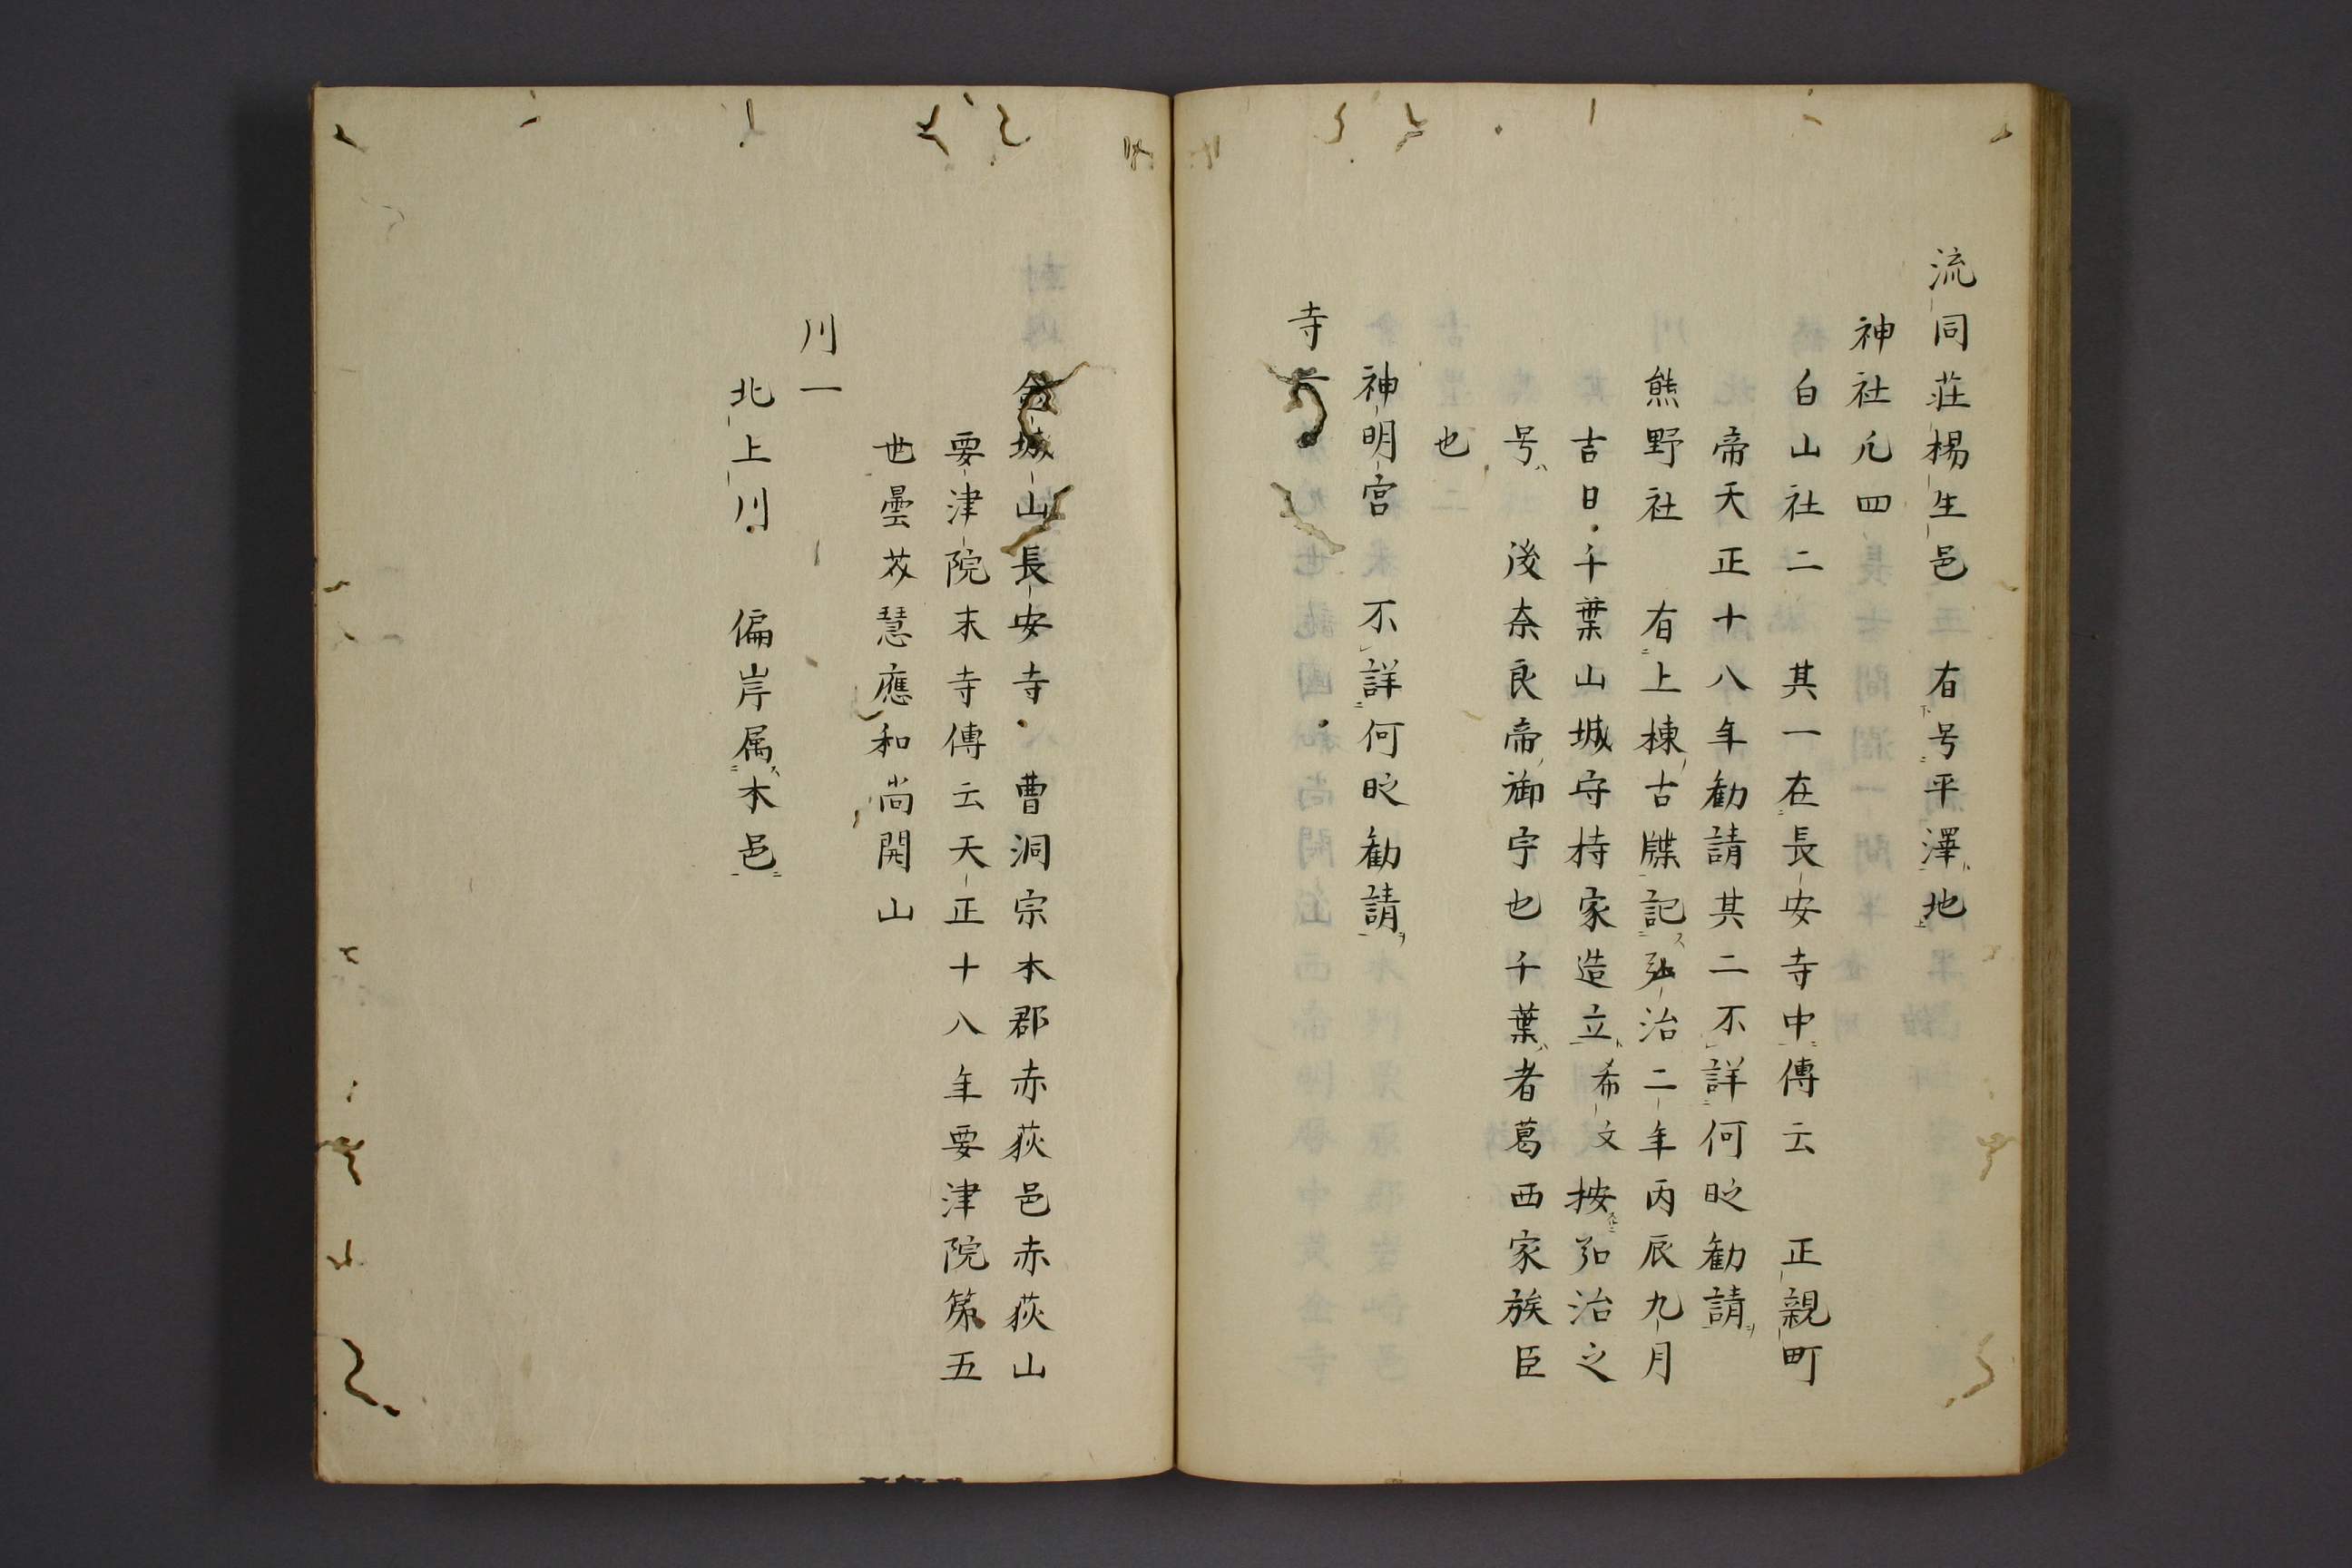 流同荘楊生邑　有号平澤地
神社凢四
白山社二　其一在長安寺中傳云　正親町
帝天正十八年勧請其二不詳何時勧請
熊野社　有上棟古牒記弘治二年丙辰九月
吉日千葉山城守持家造立希文按弘治之
号　後奈良帝御宇也千葉者葛西家族臣
也
神明宮　不詳何時勧請
寺一
城山長安寺　曹洞宗本郡赤荻邑赤荻山
要津院末寺傳云天正十八年要津院第五
世曇芳慧應和尚開山
川一
北上川　偏岸属本邑